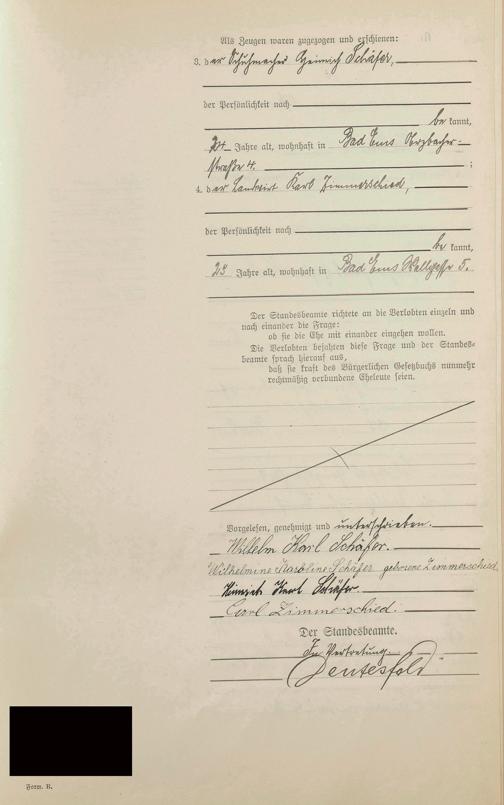 Als Zeugen waren zugezogen und erschienen:
3. der Schuhmacher Heinrich Schäfer,
der Persönlichkeit nach
bekannt,
24 Jahre alt, wohnhaft in Bad Ems
straße 4. ;
4. der Landwirt Karl Zimmerschied,
der Persönlichkeit nach
bekannt,
23 Jahre alt, wohnhaft in Bad Ems 5.
Der Standesbeamte richtete an die Verlobten einzeln und
nach einander die Frage:
ob sie die Ehe mit einander eingehen wollen.
Die Verlobten bejahten diese Frage und der Standes-
beamte sprach hierauf aus,
daß sie kraft des Bürgerlichen Gesetzbuchs nunmehr
rechtmäßig verbundene Eheleute seien.
Vorgelesen, genehmigt und unterschrieben.
Wilhelm Karl Schäfer.
Wilhelmine Karoline Schäfer geborene Zimmerschied
Heinrich Karl Schäfer.
Carl Zimmerschied.
Der Standesbeamte.
In Vertretung.
Form. B.